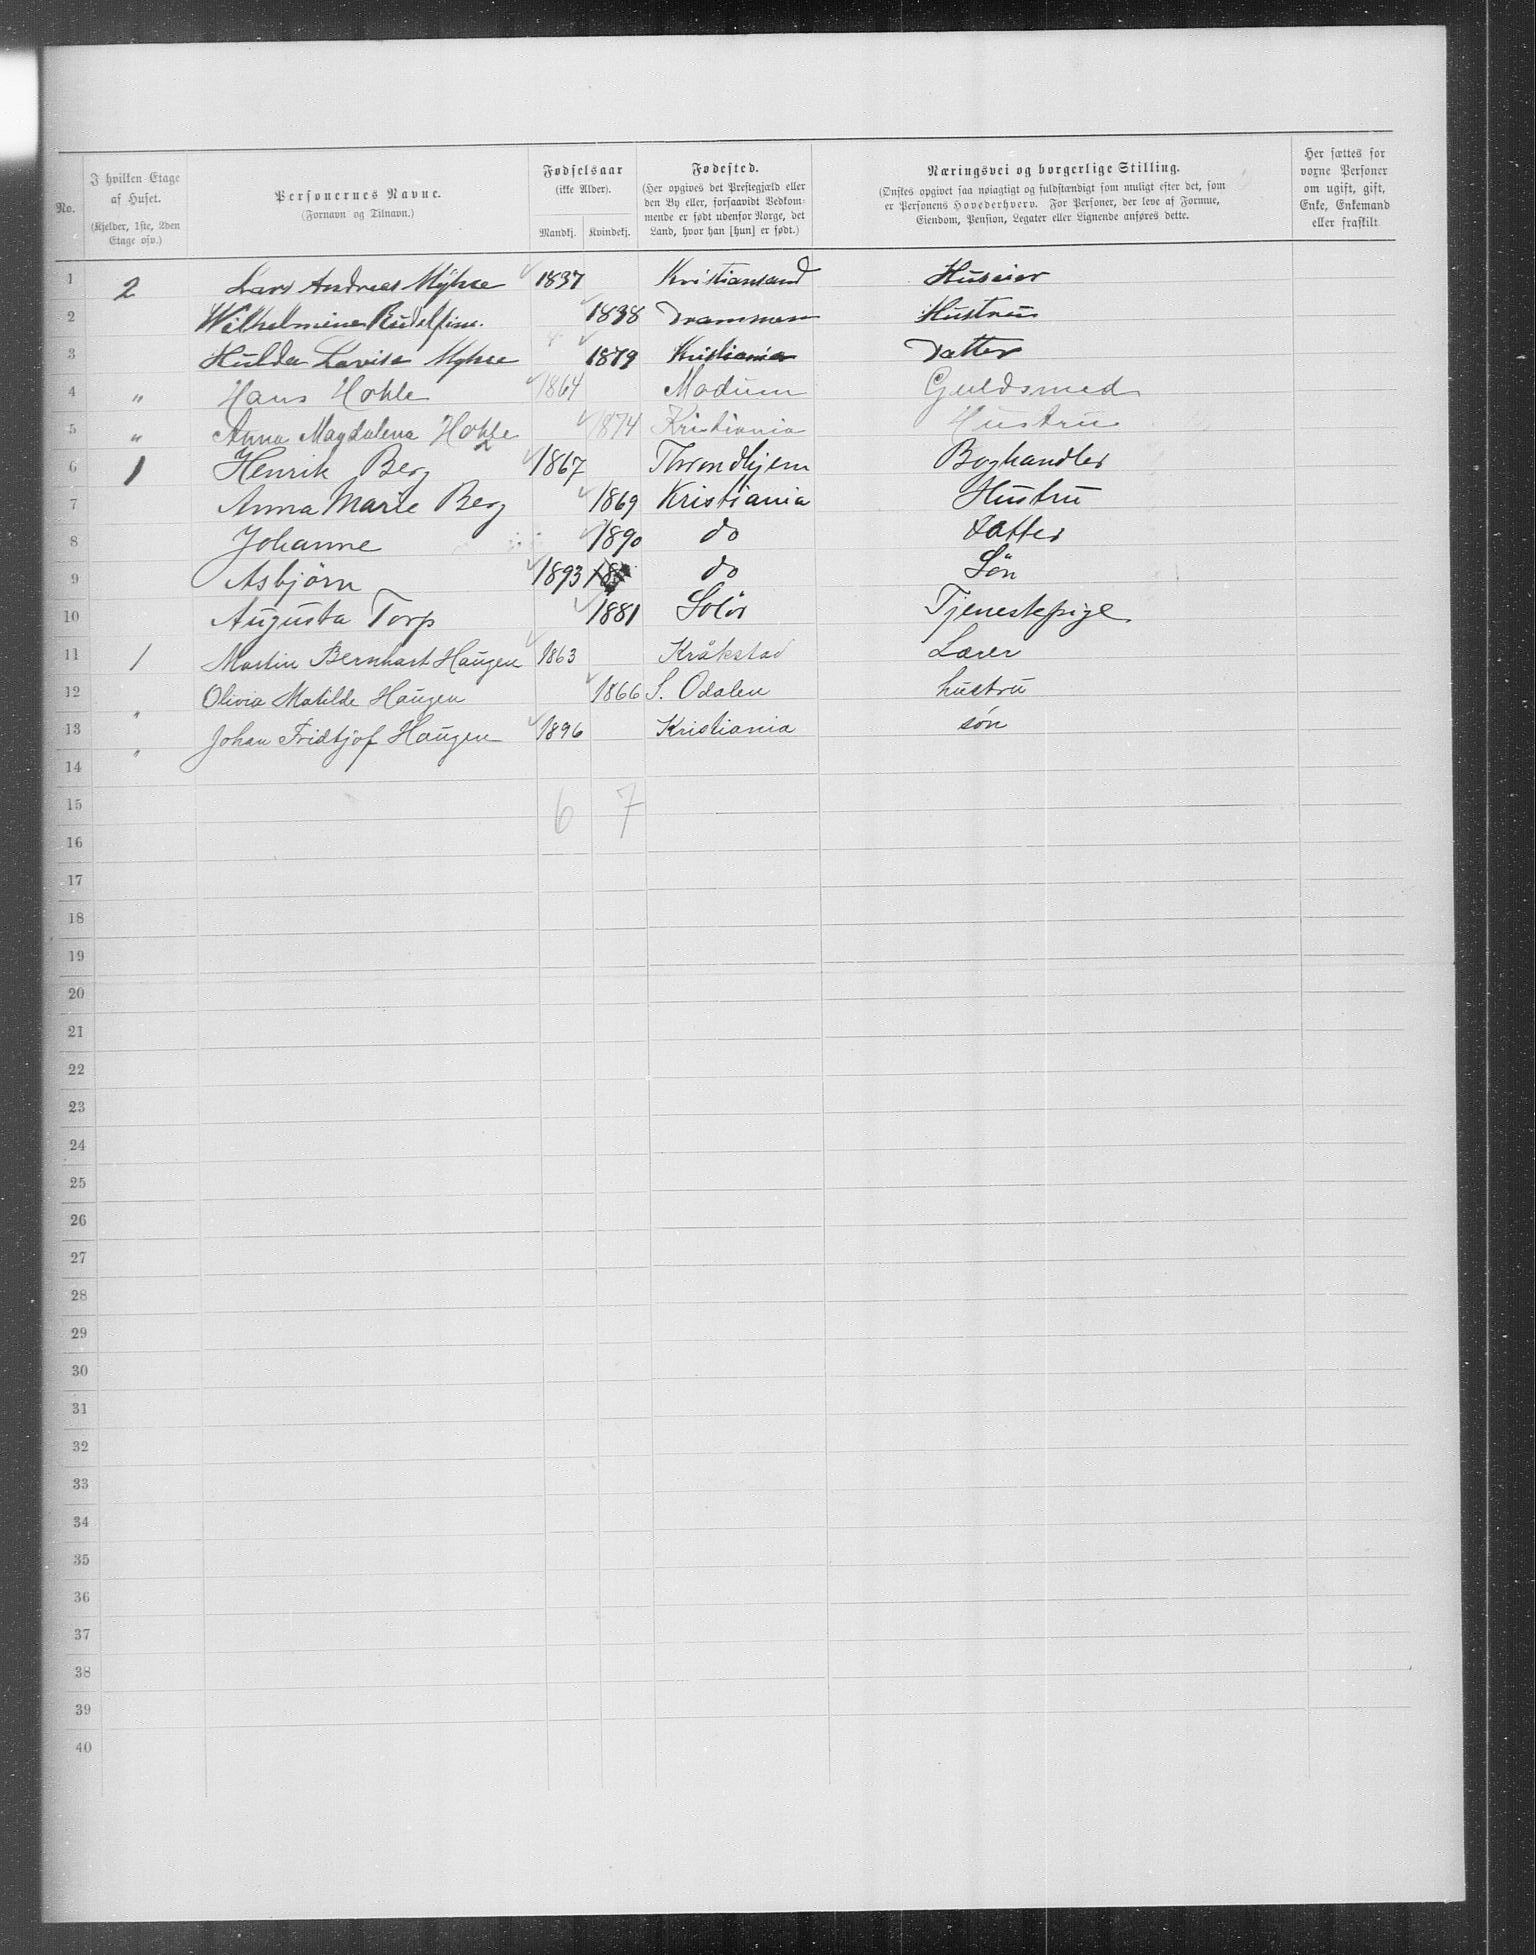 No.
I hvilken Etage af Huset.
(Kjelder, 1ste, 2den Etage osv.)
Personernes Navne.
(Fornavn og Tilnavn.)
Fødselsaar
(ikke Alder).
Mandkj. Kvindekj.
Fødested.
(Her opgives det Prestegjæld eller
den By eller, forsaavidt Vedkom-
mende er født udenfor Norge, det
Land, hvor han [hun] er født.)
Næringsvei og borgerlige Stilling.
(Ønskes opgivet saa nøiagtigt og fuldstændigt som muligt efter det, som
er Personens Hovederhverv. For Personer, der leve af Formue,
Eiendom, Pension, Legater eller Lignende anføres dette.
Her sættes for
voxne Personer
om ugift, gift,
Enke, Enkemand
eller fraskilt
1 2 Lars Andreas 1837 Kristiansand Huseier
2 Wilhelmine Rudolfine. 1838 Drammen Hustru
3 Hulda Lovise 1879 Kristiania Datter
4 " Hans Hohle 1864 Modum Guldsmed
5 " Anna Magdalena Hohle 1874 Kristiania Hustru
6 1 Henrik Berg 1867 Throndhjem Boghandler
7 Anna Marie Berg 1869 Kristiania Hustru
8 Johanne 1890 do datter
9 Asbjörn 1893 do Sön
10 Augusta Torp 1881 Solör Tjenestepige
11 1 Martin Bernhart Haugen 1863 Kråkstad Lærer
12 " Olivia Matilde Haugen 1866 S. Odalen hustru
13 " Johan Fridtjof Haugen 1896 Kristiania søn
14
15
6 7
16
17
18
19
20
21
22
23
24
25
26
27
28
29
30
31
32
33
34
35
36
37
38
39
40